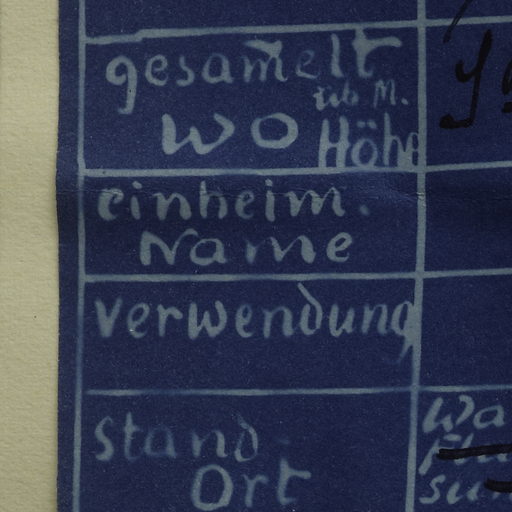 gesam̃elt
wo üb. M. Höhe
einheim.
Name
verwendung
Stand-
Ort
Wa